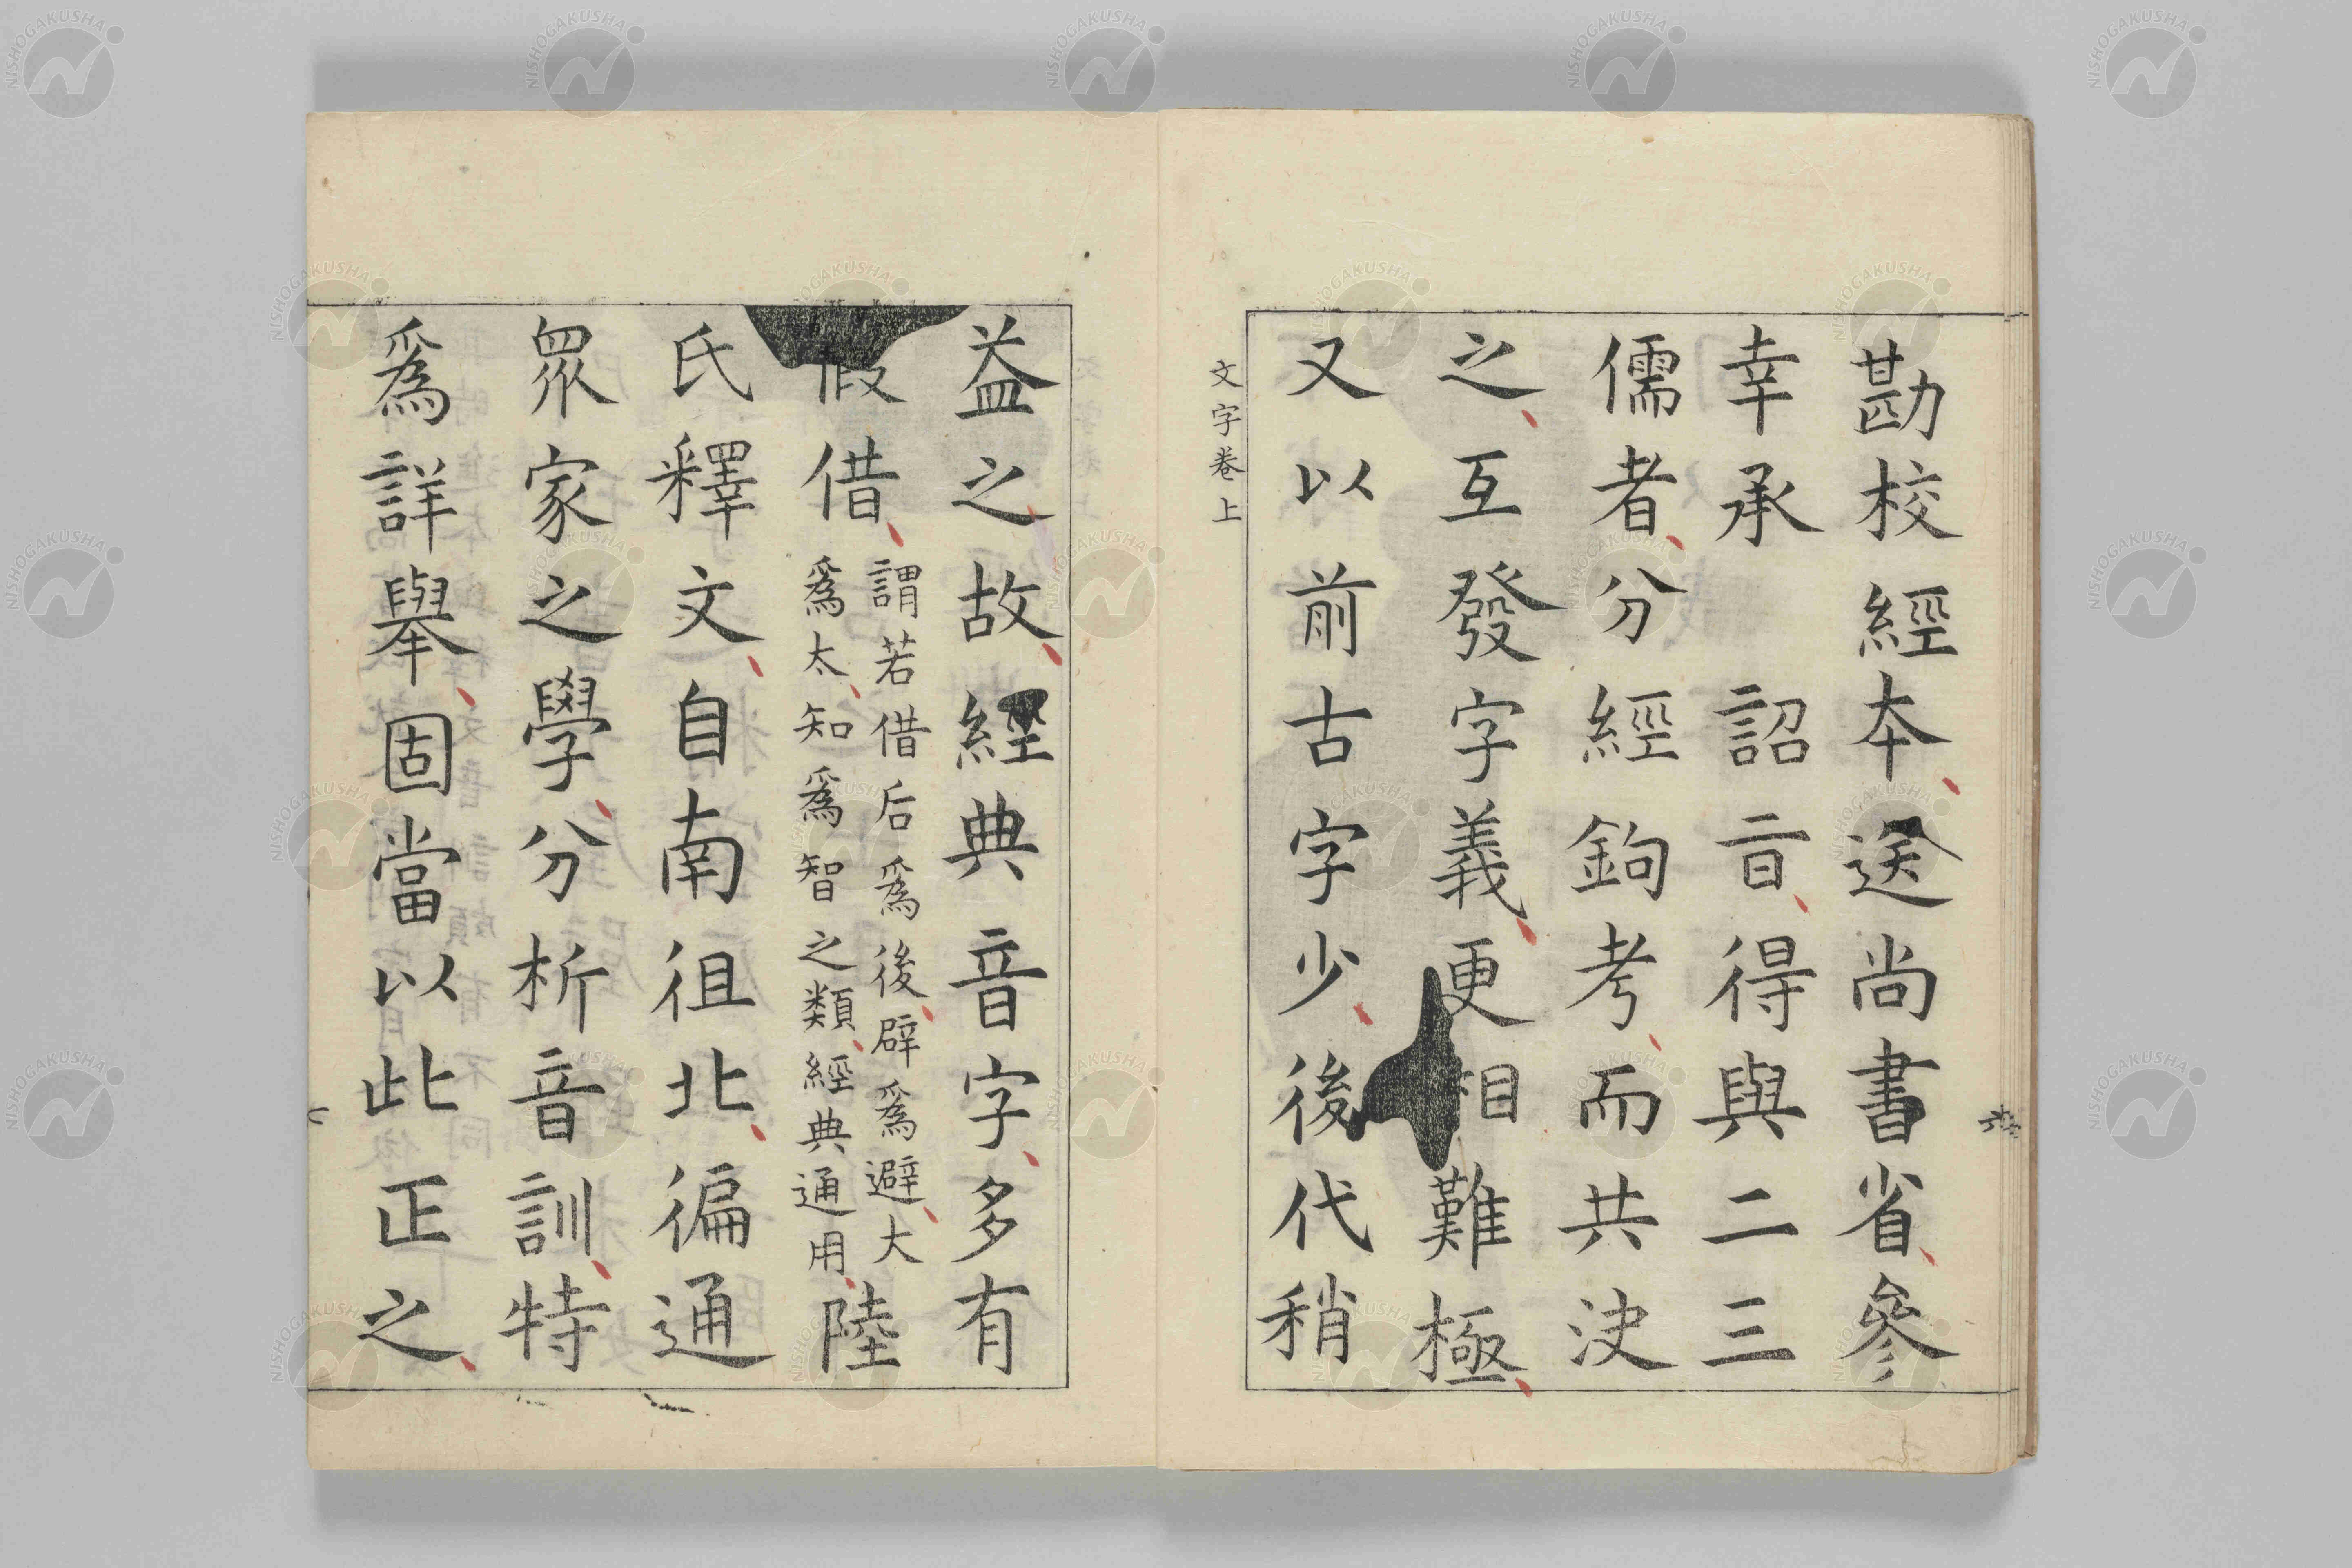 勘校經本送尚書省參
幸承 詔㫖得與二三
儒者分經鉤考而共決
之互發字義更相難極
又以前古字少後代稍
文字卷上
益之故經典音字多有
假借謂若借后爲後辟爲避大
爲太知爲智之類經典通用陸
氏釋文自南徂北徧通
眾家之學分析音訓特
爲詳舉固當以此正之
NISHOGAKUSHA